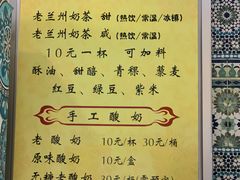 老兰州奶茶 甜(热饮/常温/冰镇)
老兰州奶茶 咸(热饮/常温)
10元一杯 可加料
酥油、甜醅、青稞、藜麦
红豆、绿豆、紫米
手工酸奶
老酸奶 10元/杯 30元/桶
原味酸奶 10元/盒
无糖老酸奶